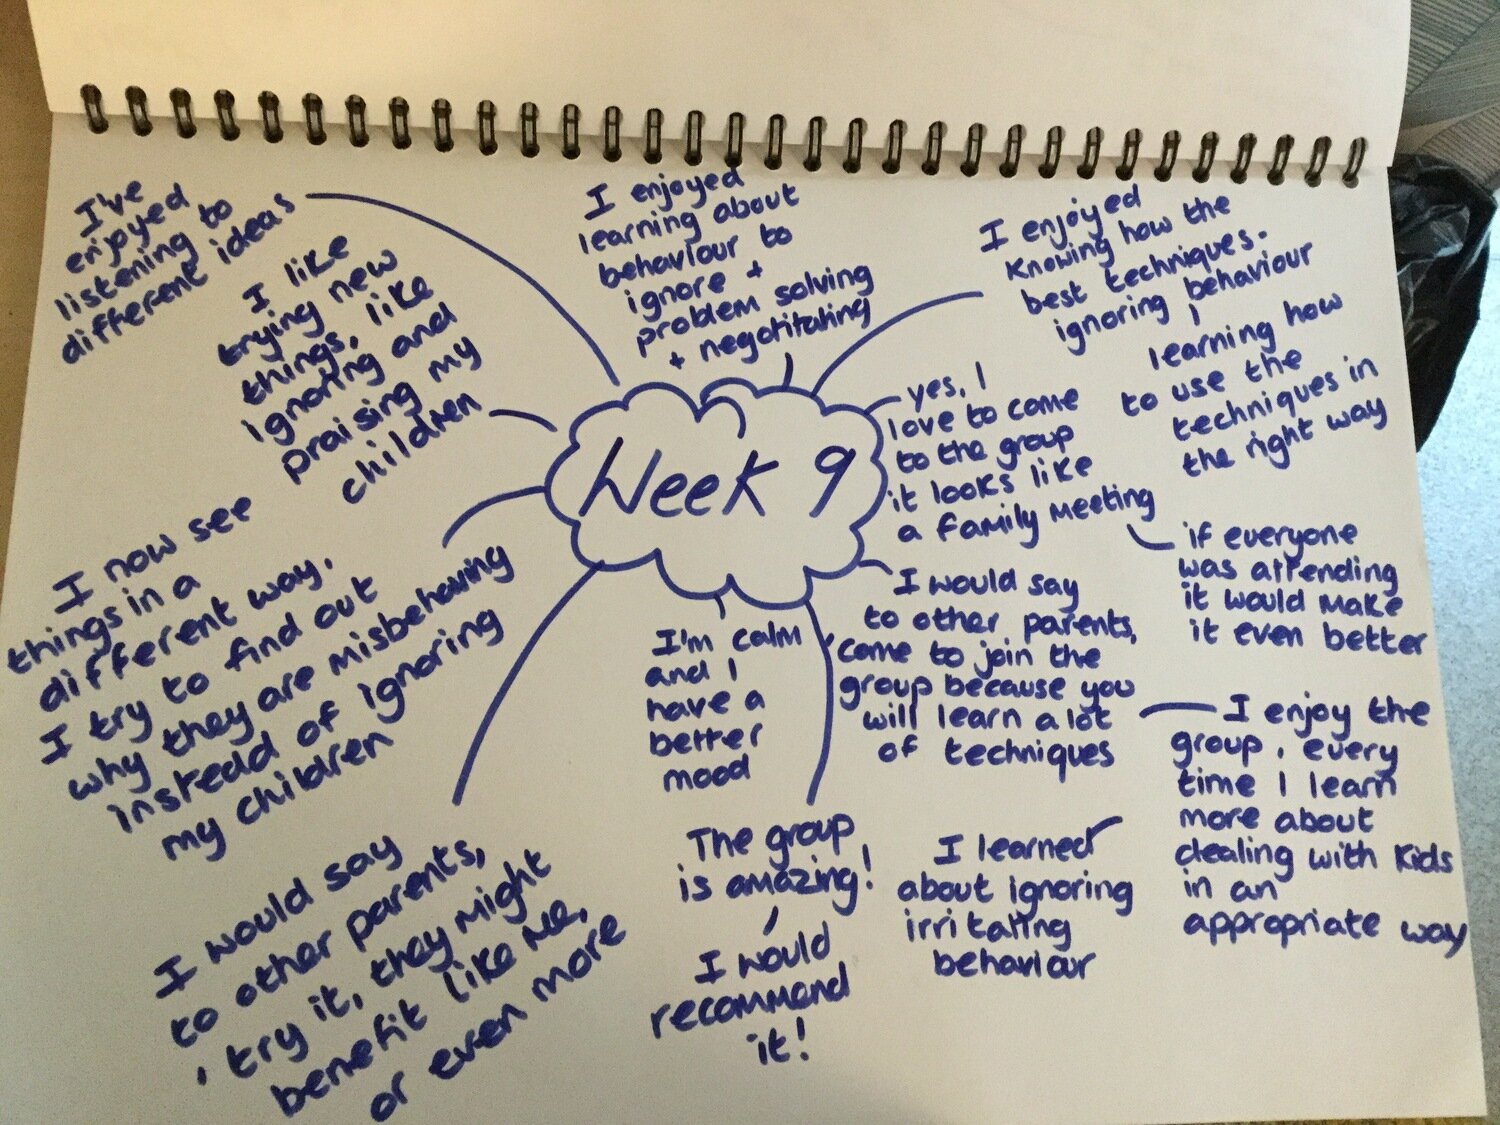 I've
enjoyed
listening to
different ideas
I like
trying new
things, like
ignoring and
praising my
children
I now see
things in a
different way,
I try to find out
why they are misbehaving
instead of ignoring
my children
I would say
to other parents,
, try it, they might
benefit like me,
or even more
I enjoyed
learning about
behaviour to
ignore +
problem solving
+ negotitating
Week 9
I'm calm
and I
have a
better
mood
The group
is amazing!
I would
recommend
it!
I enjoyed
knowing how the
best techniques.
ignoring behaviour
learning how
to use the
techniques in
the right way
yes, I
love to come
to the group
it looks like
a family meeting
if everyone
was attending
it would make
it even better
I would say
to other parents,
come to join the
group because you
will learn a lot
of techniques
I enjoy the
group, every
time I learn
more about
dealing with kids
in an
appropriate way
I learned
about ignoring
irritating
behaviour